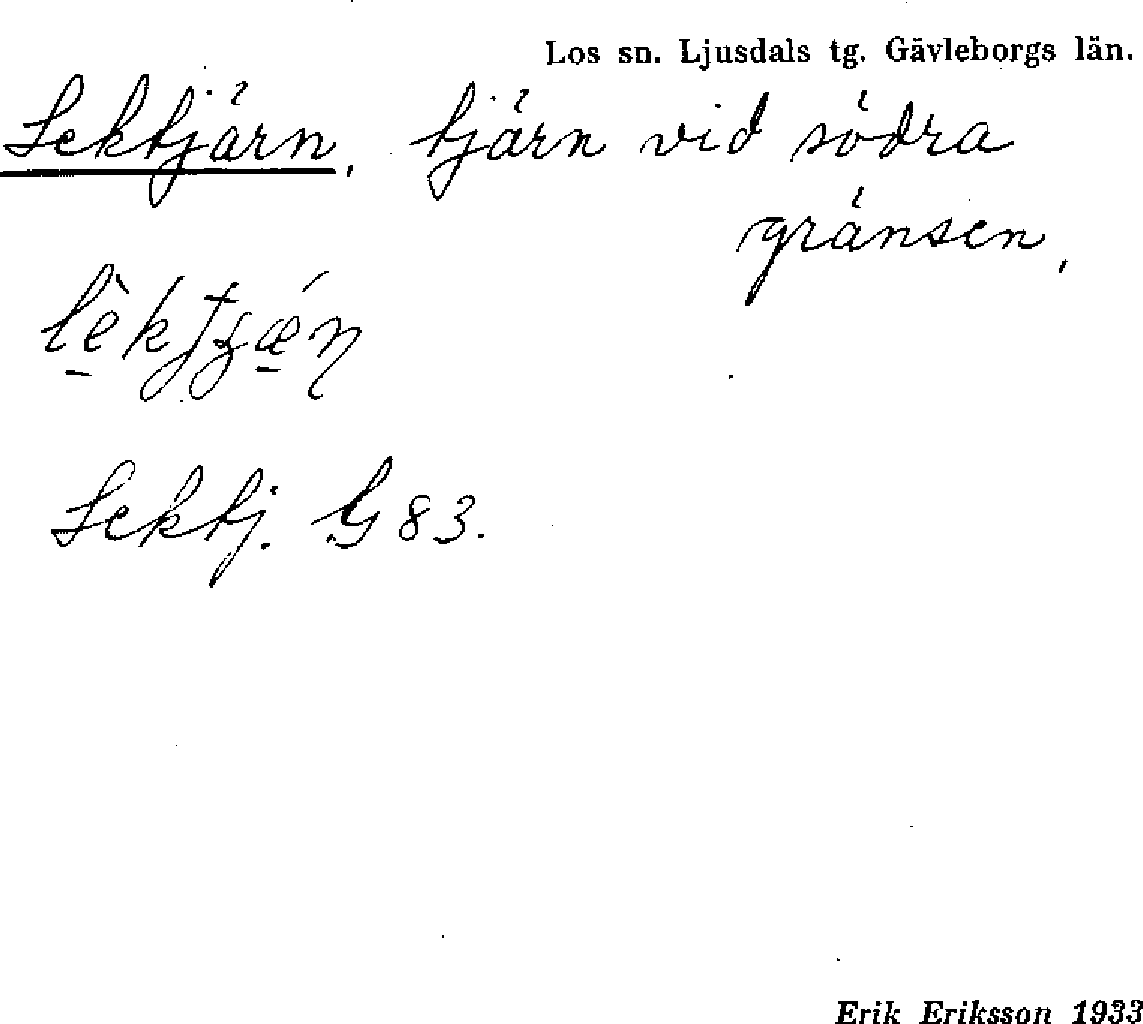 Los sn. Ljusdals tg. Gävleborgs län.
Lektjärn, tjärn vid södra
gränsen,
Lektj. G 83.
Erik Eriksson 1933